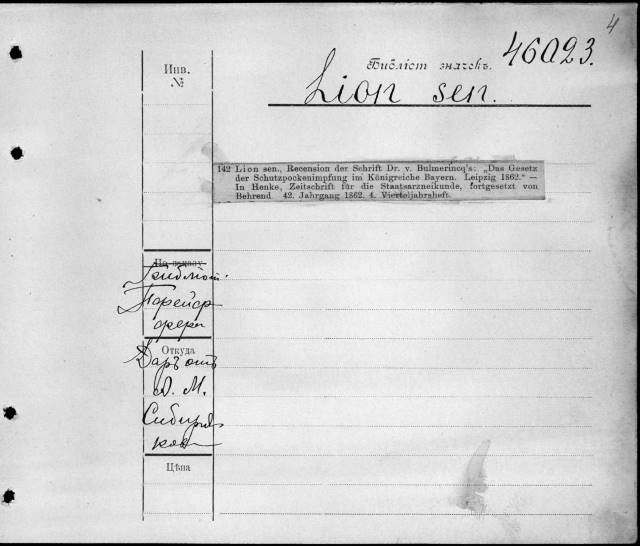 4
46023.
Инв.
№
Библіот. значекъ.
Lion sen.
142 Lion sen., Recension der Schrift Dr. v. Bulmerincq's: „Das Gesetz
der Schutzpockenimpfung im Königreiche Bayern. Leipzig 1862.“ —
In Henke, Zeitschrift für die Staatsarzneikunde, fortgesetzt von
Behrend 42. Jahrgang 1862. 4. Vierteljahrsheft.
По заказу
Библіот.
Откуда
Даръ отъ
Сибиряко
ва
Цѣна